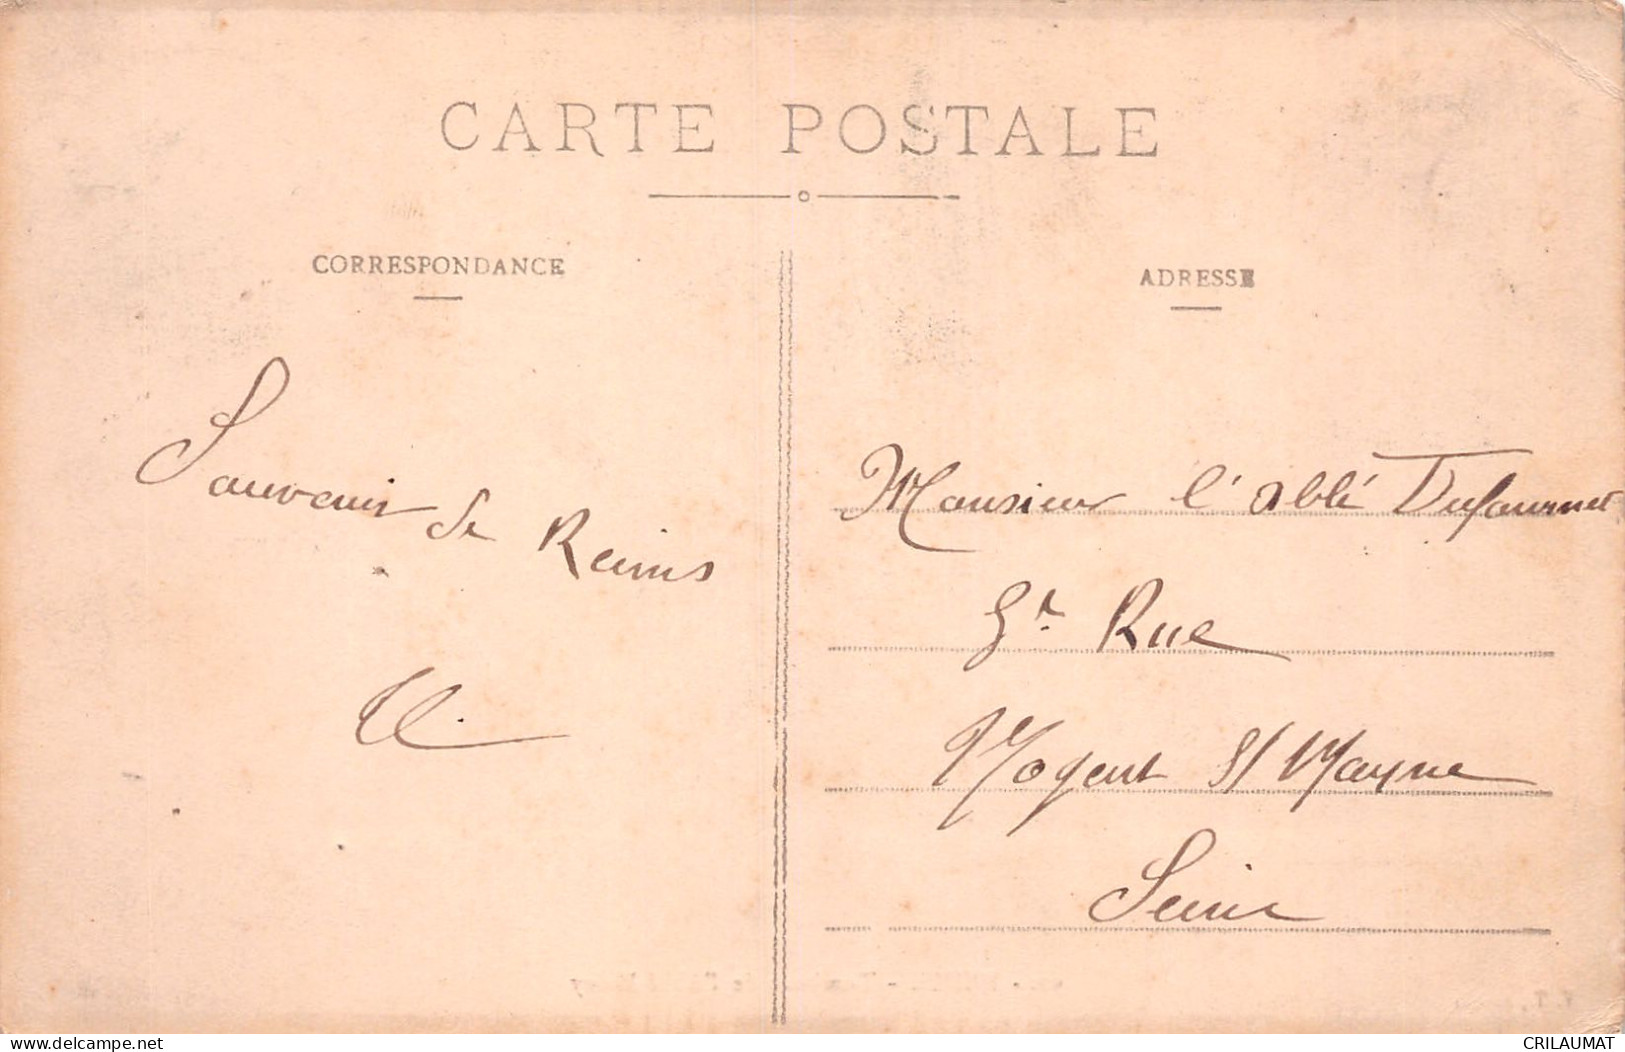 CARTE POSTALE
CORRESPONDANCE
ADRESSE
Souvenir de Reims
Monsieur l'abbé Dufournet
Gde Rue
Nogent s/ Marne
Seine
www.delcampe.net
CRILAUMAT